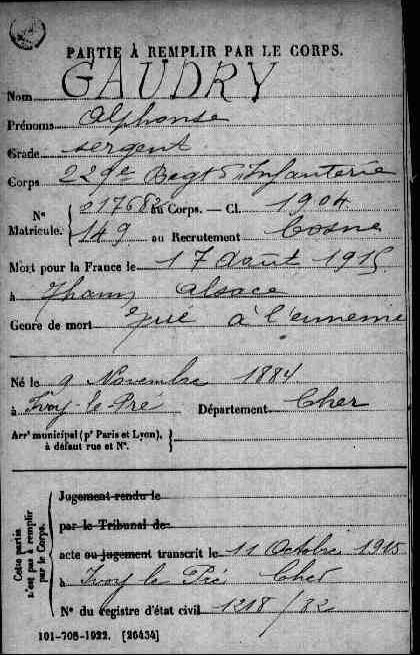 PARTIE À REMPLIR PAR LE CORPS.
Nom GAUDRY
Prénoms Alphonse
Grade sergent
Corps 229e Regt d'Infanterie
N° Matricule. { 017682 au Corps. — Cl. 1904
149 au Recrutement Cosne
Mort pour la France le 17 août 1915
à Thann Alsace
Genre de mort Tué à l'ennemi
Né le 9 Novembre 1884
à Ivoy-le-Pré Département Cher
Arrt municipal (pr Paris et Lyon),
à défaut rue et N°.
Cette partie n'est pas à remplir par le Corps.
Jugement rendu le
par le Tribunal de
acte ou jugement transcrit le 11 Octobre 1915
à Ivoy le Pré Cher
N° du registre d'état civil 1218/82
101-708-1922. [26434]